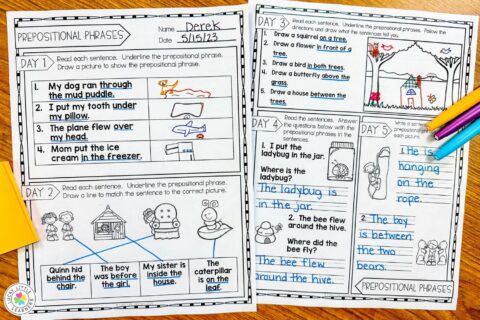 PREPOSITIONAL PHRASES
Name Derek
Date 5/15/23
DAY 1
Read each sentence. Underline the prepositional phrase.
Draw a picture to show the prepositional phrase.
1. My dog ran through
the mud puddle.
2. I put my tooth under
my pillow.
3. The plane flew over
my head.
4. Mom put the ice
cream in the freezer.
DAY 2
Read each sentence. Underline the prepositional phrase.
Draw a line to match the sentence to the correct picture.
Quinn hid
behind the
chair.
The boy
was before
the girl.
My sister is
inside the
house.
The
caterpillar
is on the
leaf.
DAY 3
Read each sentence. Underline the prepositional phrases. Follow the
directions and draw what the sentences tell you.
1. Draw a squirrel on a tree.
2. Draw a flower in front of a
tree.
3. Draw a bird in both trees.
4. Draw a butterfly above the
grass.
5. Draw a house between the
trees.
DAY 4
Read the sentences. Answer
the questions with the
prepositional phrases in the
sentences.
1. I put the
ladybug in the jar.
Where is the
ladybug?
The ladybug is
in the jar.
2. The bee flew
around the hive.
Where did the
bee fly?
The bee flew
around the hive.
DAY 5
Write a
prepositional
each picture.
1. He is
hanging
on the
rope.
2. The boy
is between
the two
bears.
PREPOSITIONAL PHRASES
LUCKY LITTLE
LEARNERS